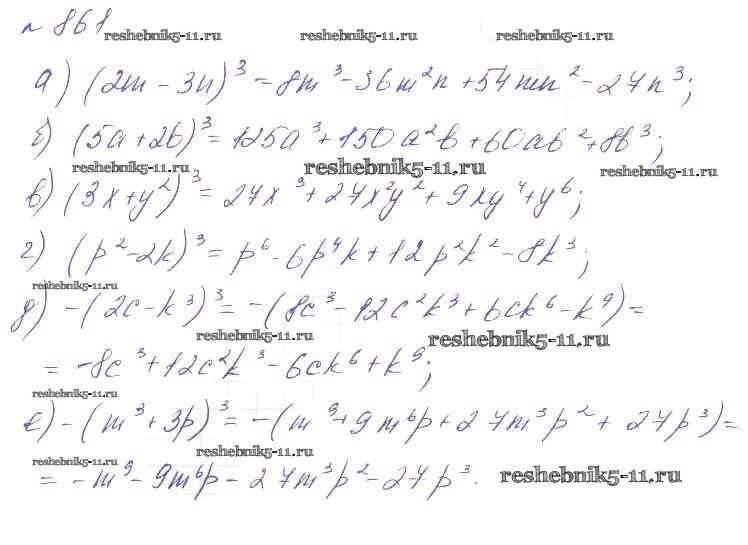 № 861
reshebnik5-11.ru reshebnik5-11.ru reshebnik5-11.ru
а) (2m - 3n)³ = 8m³ - 36m²n + 54mn² - 27n³;
б) (5a + 2b)³ = 125a³ + 150a²b + 60ab² + 8b³;
reshebnik5-11.ru reshebnik5-11.ru reshebnik5-11.ru
в) (3x + y²)³ = 27x³ + 27x²y² + 9xy⁴ + y⁶;
г) (p² - 2k)³ = p⁶ - 6p⁴k + 12p²k² - 8k³;
reshebnik5-11.ru
д) -(2c - k³)³ = -(8c³ - 12c²k³ + 6ck⁶ - k⁹) =
reshebnik5-11.ru reshebnik5-11.ru
= -8c³ + 12c²k³ - 6ck⁶ + k⁹;
reshebnik5-11.ru
е) -(m³ + 3p)³ = -(m⁹ + 9m⁶p + 27m³p² + 27p³) =
reshebnik5-11.ru reshebnik5-11.ru
= -m⁹ - 9m⁶p - 27m³p² - 27p³. reshebnik5-11.ru